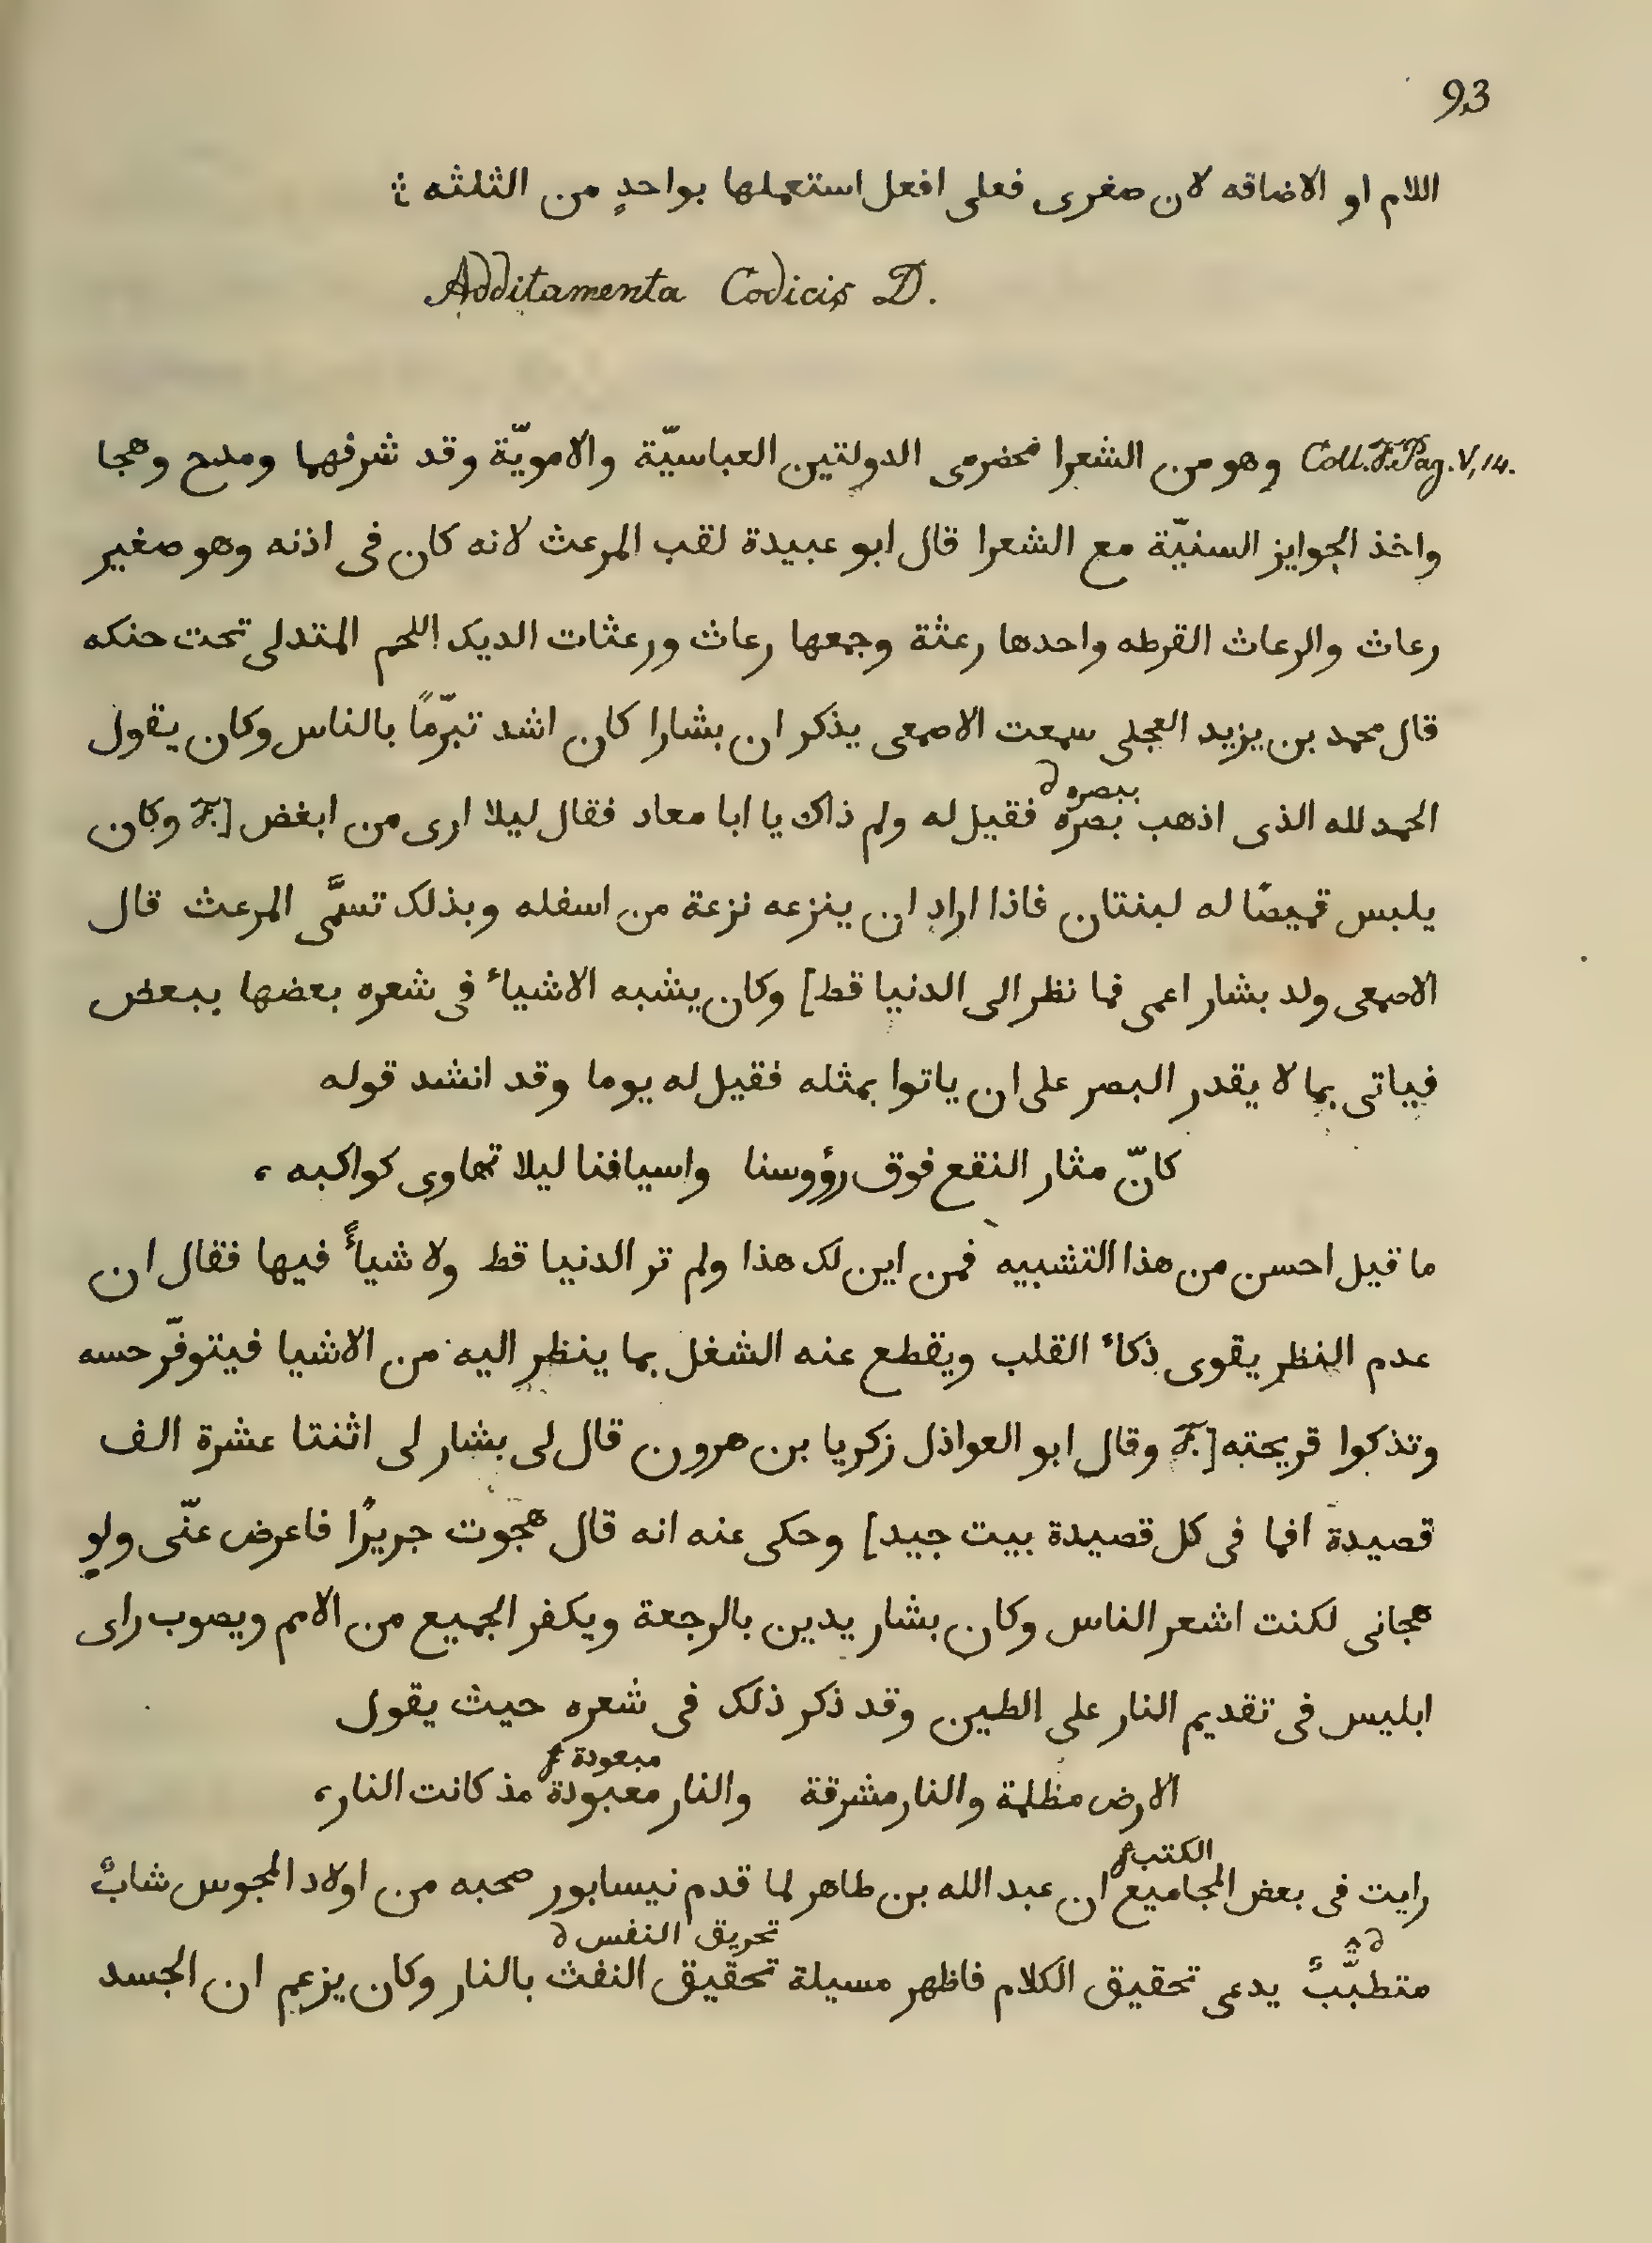 93
اللام او الاضافه لان صغرى فعلى افعل استعملها بواحدٍ من الثلثه
Additamenta Codicis D.
Coll. F. Pag. V, 14. وهو من الشعرا مخضرمى الدولتين العباسيّة والامويّة وقد شرفهما ومدح وهجا
واخذ الجوايز السنيّة مع الشعرا قال ابو عبيدة لقب المرعث لانه كان فى اذنه وهو صغير
رعاث والرعاث القرطه واحدها رعثة وجمعها رعاث ورعثات الديك اللحم المتدلى تحت حنكه
قال محمد بن يزيد العجلى سمعت الاصمعى يذكر ان بشارا كان اشد تبرّمًا بالناس وكان يقول
ببصره
الحمد لله الذى اذهب بصره فقيل له ولم ذاك يا ابا معاد فقال ليلا ارى من ابغض [F. وكان
يلبس قميصًا له لبنتان فاذا اراد ان ينزعه نزعة من اسفله وبذلك تسمَّى المرعث قال
الاصمعى ولد بشار اعمى فما نظر الى الدنيا قط] وكان يشبه الاشياء فى شعره بعضها ببعض
فياتى بما لا يقدر البصر على ان ياتوا بمثله فقيل له يوما وقد انشد قوله
كانّ مثار النقع فوق رؤوسنا واسيافنا ليلا تهاوى كواكبه ،
ما قيل احسن من هذا التشبيه فمن اين لك هذا ولم تر الدنيا قط ولا شياءً فيها فقال ان
عدم النظر يقوى ذكاء القلب ويقطع عنه الشغل بما ينظر اليه من الاشيا فيتوفّر حسه
وتذكوا قريحته [F. وقال ابو العواذل زكريا بن هرون قال لى بشار لى اثنتا عشرة الف
قصيدة افما فى كل قصيدة بيت جيد] وحكى عنه انه قال هجوت جريرًا فاعرض عنّى ولو
هجانى لكنت اشعر الناس وكان بشار يدين بالرجعة ويكفر الجميع من الامم ويصوب راى
ابليس فى تقديم النار على الطين وقد ذكر ذلك فى شعره حيث يقول
مبعودة f
الارض مظلمة والنار مشرقة والنار معبودة مذ كانت النار ،
الكتب f
رايت فى بعض المجاميع ان عبد الله بن طاهر لما قدم نيسابور صحبه من اولاد المجوس شابٌ
تحريق النفس
متطبّبٌ يدعى تحقيق الكلام فاظهر مسيلة تحقيق النفث بالنار وكان يزعم ان الجسد